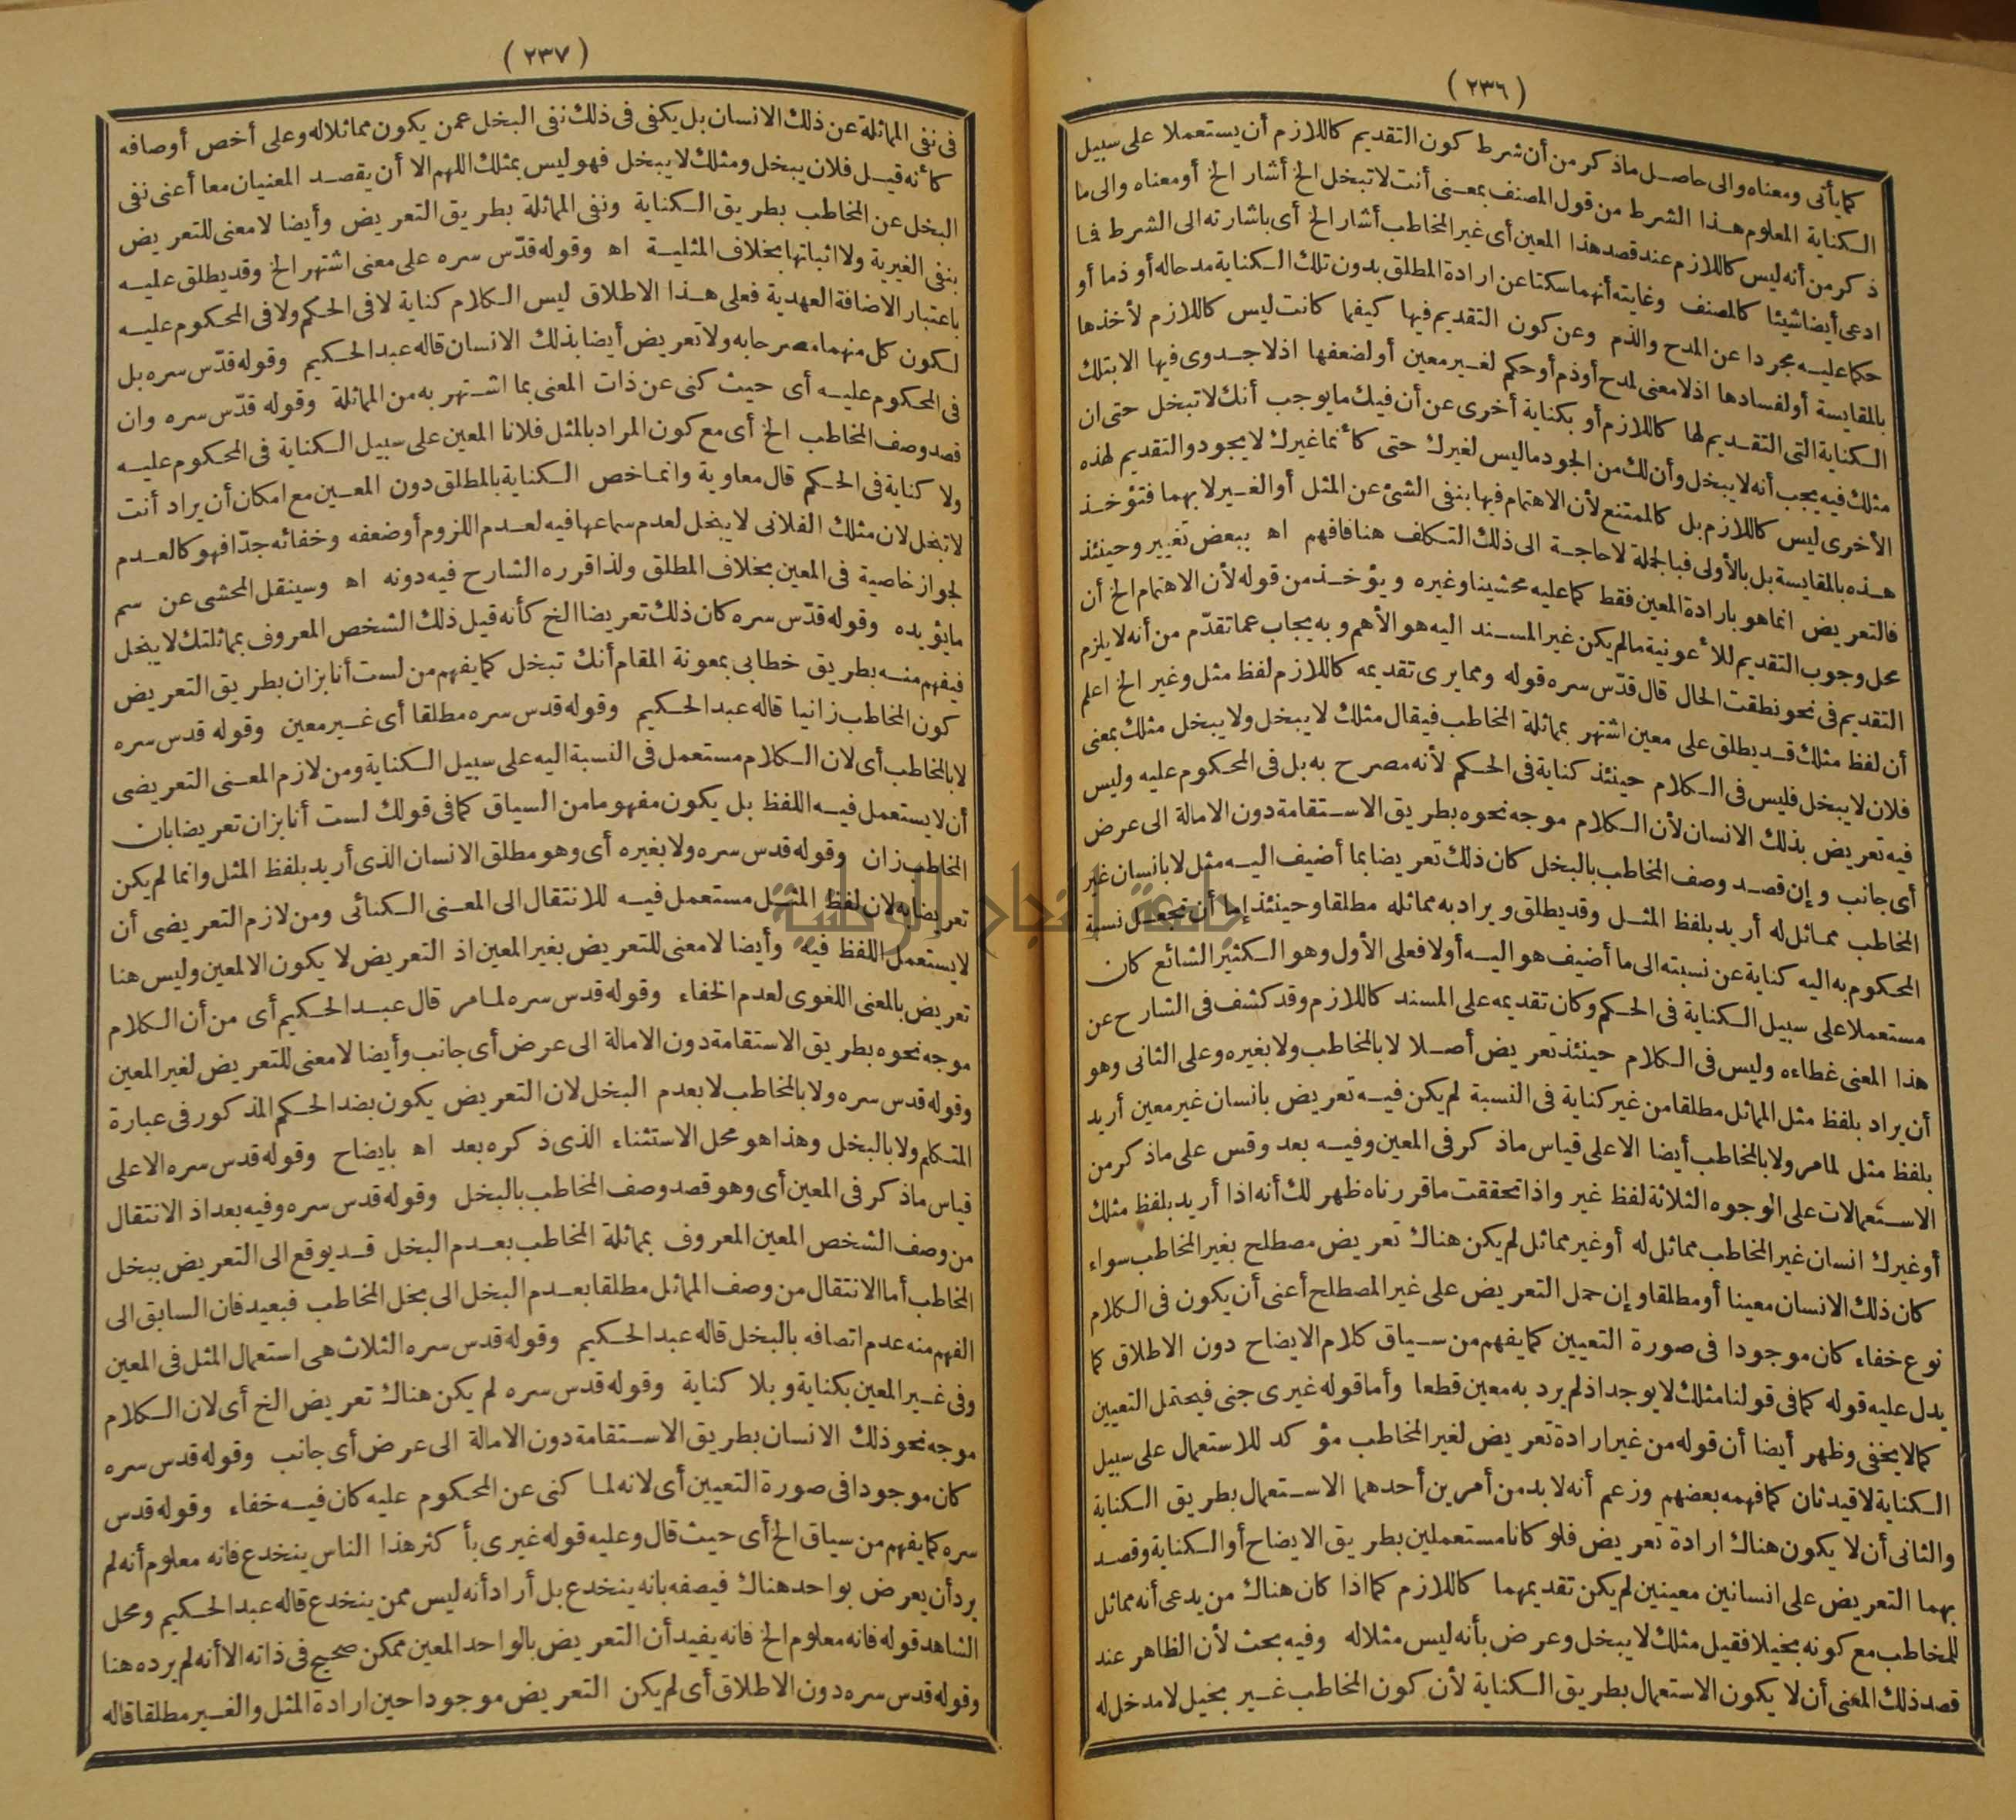 ( ٢٣٦ )
كما يأتى ومعناه والى حاصل ماذكر من أن شرط كون التقديم كاللازم أن يستعملا على سبيل
الكناية المعلوم هذا الشرط من قول المصنف بمعنى أنت لا تبخل الخ أشار الخ أومعناه والى ما
ذكر من أنه ليس كاللازم عند قصد هذا المعين أى غير المخاطب أشار الخ أى باشارته الى الشرط فما
ادعى أيضا شيئا كالمصنف وغايته أنهما سكتا عن ارادة المطلق بدون تلك الكناية مدحاله أو ذما أو
حكما عليه مجردا عن المدح والذم وعن كون التقديم فيها كيفما كانت ليس كاللازم لأخذها
بالمقايسة أو لفسادها اذلا معنى لمدح أوذم أوحكم لغير معين أو لضعفها اذلا جدوى فيها الا بتلك
الكناية التى التقديم لها كاللازم أو بكناية أخرى عن أن فيك مايوجب أنك لا تبخل حتى ان
مثلك فيه يجب أنه لا يبخل وأن لك من الجود ماليس لغيرك حتى كأنما غيرك لا يجود والتقديم لهذه
الأخرى ليس كاللازم بل كالممتنع لأن الاهتمام فيها بنفى الشئ عن المثل أو الغير لا بهما فتؤخذ
هذه بالمقايسة بل بالأولى فبالجملة لا حاجة الى ذلك التكلف هنا فافهم اه ببعض تغيير وحينئذ
فالتعريض انما هو بارادة المعين فقط كما عليه محشينا وغيره ويؤخذ من قوله لأن الاهتمام الخ أن
محل وجوب التقديم للأعونية مالم يكن غير المسند اليه هو الأهم وبه يجاب عما تقدّم من أنه لا يلزم
التقديم فى نحو نطقت الحال قال قدّس سره قوله ومما يرى تقديمه كاللازم لفظ مثل وغير الخ اعلم
أن لفظ مثلك قد يطلق على معين اشتهر بمماثلة المخاطب فيقال مثلك لا يبخل ولا يبخل مثلك بمعنى
فلان لا يبخل فليس فى الكلام حينئذ كناية فى الحكم لأنه مصرح به بل فى المحكوم عليه وليس
فيه تعريض بذلك الانسان لأن الكلام موجه نحوه بطريق الاستقامة دون الامالة الى عرض
أى جانب وإن قصد وصف المخاطب بالبخل كان ذلك تعريضا بما أضيف اليه مثل لا بانسان غير
المخاطب مماثل له أريد بلفظ المثل وقد يطلق ويراد به مماثله مطلقا وحينئذ إما أن تجعل نسبة
المحكوم به اليه كناية عن نسبته الى ما أضيف هو اليه أولا فعلى الأول وهو الكثير الشائع كان
مستعملا على سبيل الكناية فى الحكم وكان تقديمه على المسند كاللازم وقد كشف فى الشارح عن
هذا المعنى غطاءه وليس فى الكلام حينئذ تعريض أصلا لا بالمخاطب ولا بغيره وعلى الثانى وهو
أن يراد بلفظ مثل المماثل مطلقا من غير كناية فى النسبة لم يكن فيه تعريض بانسان غير معين أريد
بلفظ مثل لما مر ولا بالمخاطب أيضا الا على قياس ماذكر فى المعين وفيه بعد وقس على ماذكر من
الاستعمالات على الوجوه الثلاثة لفظ غير واذا تحققت ما قررناه ظهر لك أنه اذا أريد بلفظ مثلك
أوغيرك انسان غير المخاطب مماثل له أو غير مماثل لم يكن هناك تعريض مصطلح بغير المخاطب سواء
كان ذلك الانسان معينا أو مطلقا وإن حمل التعريض على غير المصطلح أعنى أن يكون فى الكلام
نوع خفاء كان موجودا فى صورة التعيين كما يفهم من سياق كلام الايضاح دون الاطلاق كما
يدل عليه قوله كما فى قولنا مثلك لا يوجد اذلم يرد به معين قطعا وأما قوله غيرى جنى فيحتمل التعيين
كما لا يخفى وظهر أيضا أن قوله من غير ارادة تعريض لغير المخاطب مؤكد للاستعمال على سبيل
الكناية لا قيد ثان كما فهمه بعضهم وزعم أنه لا بد من أمرين أحدهما الاستعمال بطريق الكناية
والثانى أن لا يكون هناك ارادة تعريض فلو كانا مستعملين بطريق الايضاح أو الكناية وقصد
بهما التعريض على انسانين معينين لم يكن تقديمهما كاللازم كما اذا كان هناك من يدعى أنه مماثل
للمخاطب مع كونه بخيلا فقيل مثلك لا يبخل وعرض بأنه ليس مثلاله وفيه بحث لأن الظاهر عند
قصد ذلك المعنى أن لا يكون الاستعمال بطريق الكناية لأن كون المخاطب غير بخيل لا مدخل له
( ٢٣٧ )
فى نفى المماثلة عن ذلك الانسان بل يكفى فى ذلك نفى البخل عمن يكون مماثلا له وعلى أخص أوصافه
كأنه قيل فلان يبخل ومثلك لا يبخل فهو ليس بمثلك اللهم الا أن يقصد المعنيان معا أعنى نفى
البخل عن المخاطب بطريق الكناية ونفى المماثلة بطريق التعريض وأيضا لا معنى للتعريض
بنفى الغيرية ولا اثباتها بخلاف المثلية اه وقوله قدّس سره على معنى اشتهر الخ وقد يطلق عليه
باعتبار الاضافة العهدية فعلى هذا الاطلاق ليس الكلام كناية لا فى الحكم ولا فى المحكوم عليه
لكون كل منهما مصرحا به ولا تعريض أيضا بذلك الانسان قاله عبد الحكيم وقوله قدّس سره بل
فى المحكوم عليه أى حيث كنى عن ذات المعنى بما اشتهر به من المماثلة وقوله قدّس سره وان
قصد وصف المخاطب الخ أى مع كون المراد بالمثل فلانا المعين على سبيل الكناية فى المحكوم عليه
ولا كناية فى الحكم قال معاوية وانما خص الكناية بالمطلق دون المعين مع امكان أن يراد أنت
لا تبخل لان مثلك الفلانى لا يبخل لعدم سماعها فيه لعدم اللزوم أو ضعفه وخفائه جدّا فهو كالعدم
لجواز خاصية فى المعين بخلاف المطلق ولذا قرره الشارح فيه دونه اه وسينقل المحشى عن سم
مايؤيده وقوله قدّس سره كان ذلك تعريضا الخ كأنه قيل ذلك الشخص المعروف بمماثلتك لا يبخل
فيفهم منه بطريق خطابى بمعونة المقام أنك تبخل كما يفهم من لست أنا بزان بطريق التعريض
كون المخاطب زانيا قاله عبد الحكيم وقوله قدس سره مطلقا أى غير معين وقوله قدس سره
لا بالمخاطب أى لان الكلام مستعمل فى النسبة اليه على سبيل الكناية ومن لازم المعنى التعريضى
أن لا يستعمل فيه اللفظ بل يكون مفهوما من السياق كما فى قولك لست أنا بزان تعريضا بان
المخاطب زان وقوله قدس سره ولا بغيره أى وهو مطلق الانسان الذى أريد بلفظ المثل وانما لم يكن
تعريضا به لان لفظ المثل مستعمل فيه للانتقال الى المعنى الكنائى ومن لازم التعريضى أن
لا يستعمل اللفظ فيه وأيضا لا معنى للتعريض بغير المعين اذ التعريض لا يكون الا لمعين وليس هنا
تعريض بالمعنى اللغوى لعدم الخفاء وقوله قدس سره لما مر قال عبد الحكيم أى من أن الكلام
موجه نحوه بطريق الاستقامة دون الامالة الى عرض أى جانب وأيضا لا معنى للتعريض لغير المعين
وقوله قدس سره ولا بالمخاطب لا بعدم البخل لان التعريض يكون بضد الحكم المذكور فى عبارة
المتكلم ولا بالبخل وهذا هو محل الاستثناء الذى ذكره بعد اه بايضاح وقوله قدس سره الا على
قياس ماذكر فى المعين أى وهو قصد وصف المخاطب بالبخل وقوله قدس سره وفيه بعد اذ الانتقال
من وصف الشخص المعين المعروف بمماثلة المخاطب بعدم البخل قد يوقع الى التعريض ببخل
المخاطب أما الانتقال من وصف المماثل مطلقا بعدم البخل الى بخل المخاطب فبعيد فان السابق الى
الفهم منه عدم اتصافه بالبخل قاله عبد الحكيم وقوله قدس سره الثلاث هى استعمال المثل فى المعين
وفى غير المعين بكناية وبلا كناية وقوله قدس سره لم يكن هناك تعريض الخ أى لان الكلام
موجه نحو ذلك الانسان بطريق الاستقامة دون الامالة الى عرض أى جانب وقوله قدس سره
كان موجودا فى صورة التعيين أى لانه لما كنى عن المحكوم عليه كان فيه خفاء وقوله قدس
سره كما يفهم من سياق الخ أى حيث قال وعليه قوله غيرى بأكثر هذا الناس ينخدع فانه معلوم أنه لم
يرد أن يعرض بواحد هناك فيصفه بانه ينخدع بل أراد أنه ليس ممن ينخدع قاله عبد الحكيم ومحل
الشاهد قوله فانه معلوم الخ فانه يفيد أن التعريض بالواحد المعين ممكن صحيح فى ذاته الا أنه لم يرده هنا
وقوله قدس سره دون الاطلاق أى لم يكن التعريض موجودا حين ارادة المثل والغير مطلقا قاله
جامعة النجاح الوطنية